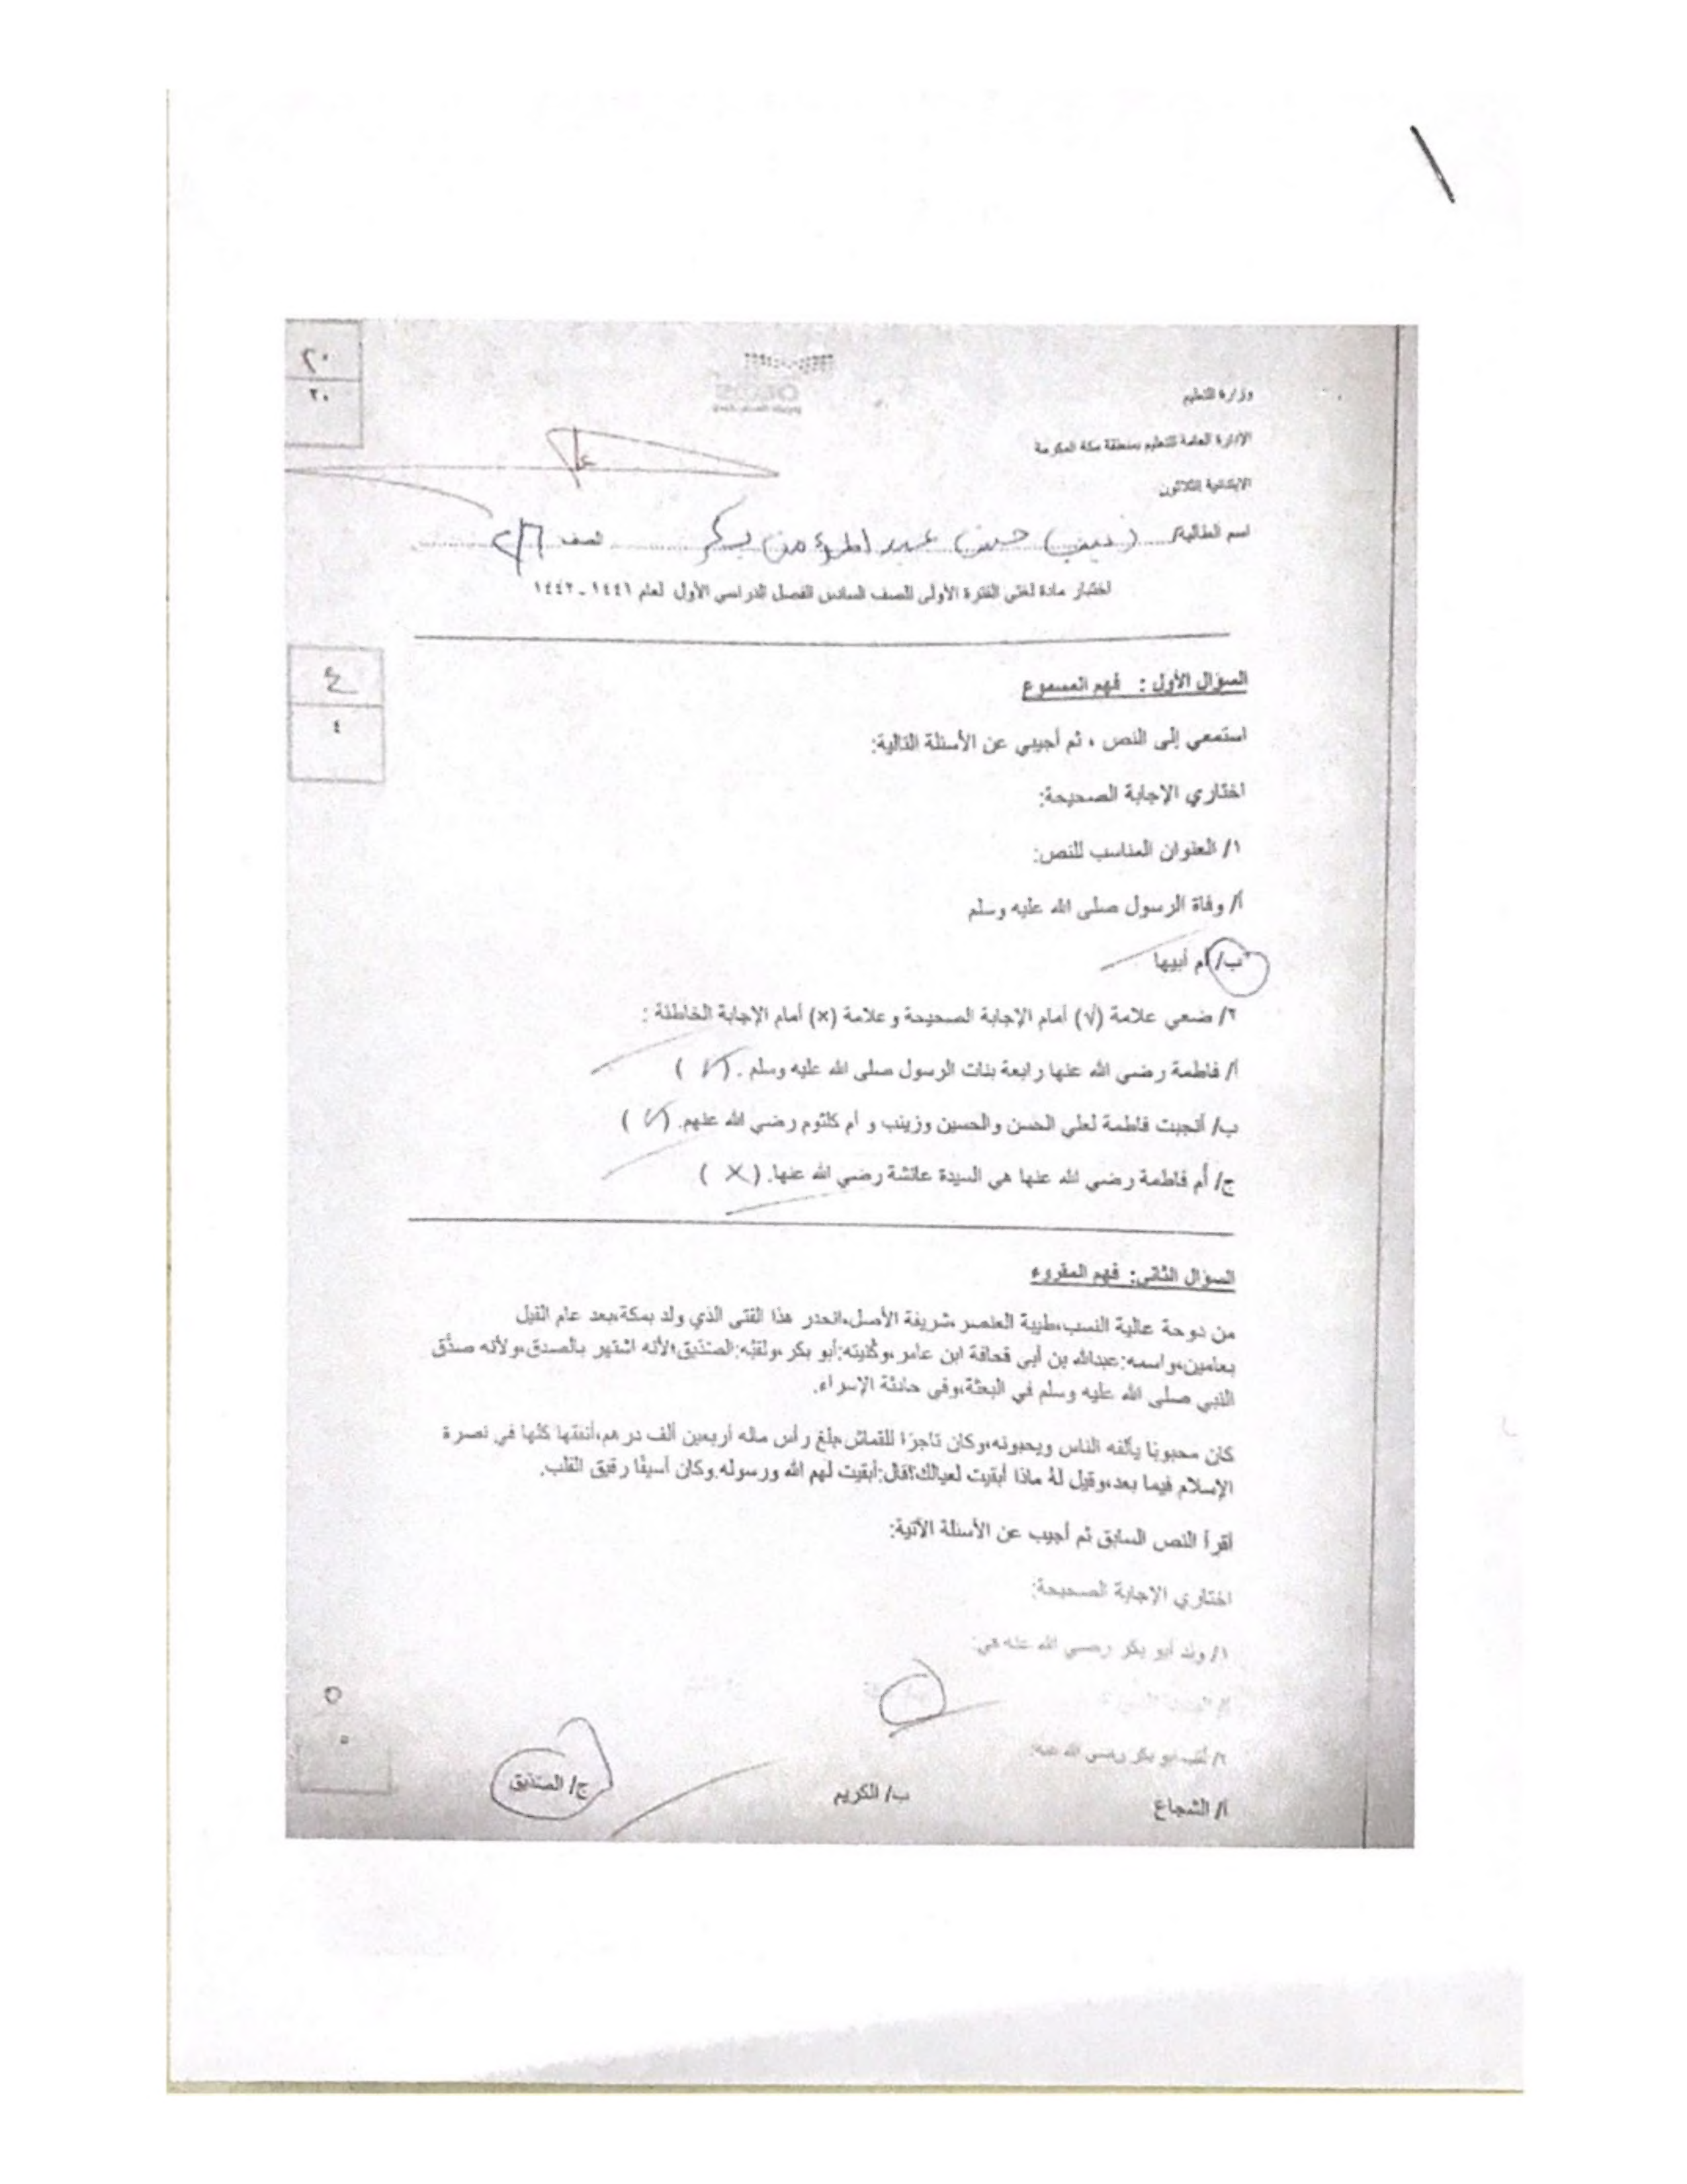 ٢٠
٢٠
وزارة التعليم
الإدارة العامة للتعليم بمنطقة مكة المكرمة
الابتدائية الثلاثون
اسم الطالبة/ حسن عبد المؤمن بكر الصف ٢/٦
اختبار مادة لغتي الفترة الأولى للصف السادس الفصل الدراسي الأول لعام ١٤٤١-١٤٤٢
٤
٤
السؤال الأول : فهم المسموع
استمعي إلى النص ، ثم أجيبي عن الأسئلة التالية:
اختاري الإجابة الصحيحة:
١/ العنوان المناسب للنص:
أ/ وفاة الرسول صلى الله عليه وسلم
ب/ أم أبيها
٢/ ضعي علامة (√) أمام الإجابة الصحيحة وعلامة (×) أمام الإجابة الخاطئة :
أ/ فاطمة رضي الله عنها رابعة بنات الرسول صلى الله عليه وسلم . ( √ )
ب/ أنجبت فاطمة لعلي الحسن والحسين وزينب و أم كلثوم رضي الله عنهم. ( √ )
ج/ أم فاطمة رضي الله عنها هي السيدة عائشة رضي الله عنها. ( × )
السؤال الثاني: فهم المقروء
من دوحة عالية النسب،طيبة العنصر،شريفة الأصل،انحدر هذا الفتى الذي ولد بمكة،بعد عام الفيل
بعامين،واسمه:عبدالله بن أبي قحافة ابن عامر،وكُنيته:أبو بكر،ولقبُه:الصدّيق؛لأنه اشتهر بالصدق،ولأنه صدّق
النبي صلى الله عليه وسلم في البعثة،وفي حادثة الإسراء.
كان محبوبًا يألفه الناس ويحبونه،وكان تاجرًا للقماش،بلغ رأس ماله أربعين ألف درهم،أنفقها كلها في نصرة
الإسلام فيما بعد،وقيل لهُ ماذا أبقيت لعيالك؟قال:أبقيت لهم الله ورسوله.وكان أسيفًا رقيق القلب.
أقرأ النص السابق ثم أجيب عن الأسئلة الآتية:
اختاري الإجابة الصحيحة:
١/ ولد أبو بكر رضي الله عنه في:
٥
٥
٢/ لُقب أبو بكر رضي الله عنه:
أ/ الشجاع ب/ الكريم ج/ الصدّيق